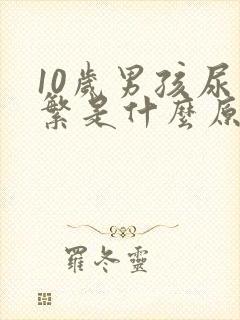 10歲男孩尿
繁是什麼原
羅冬靈